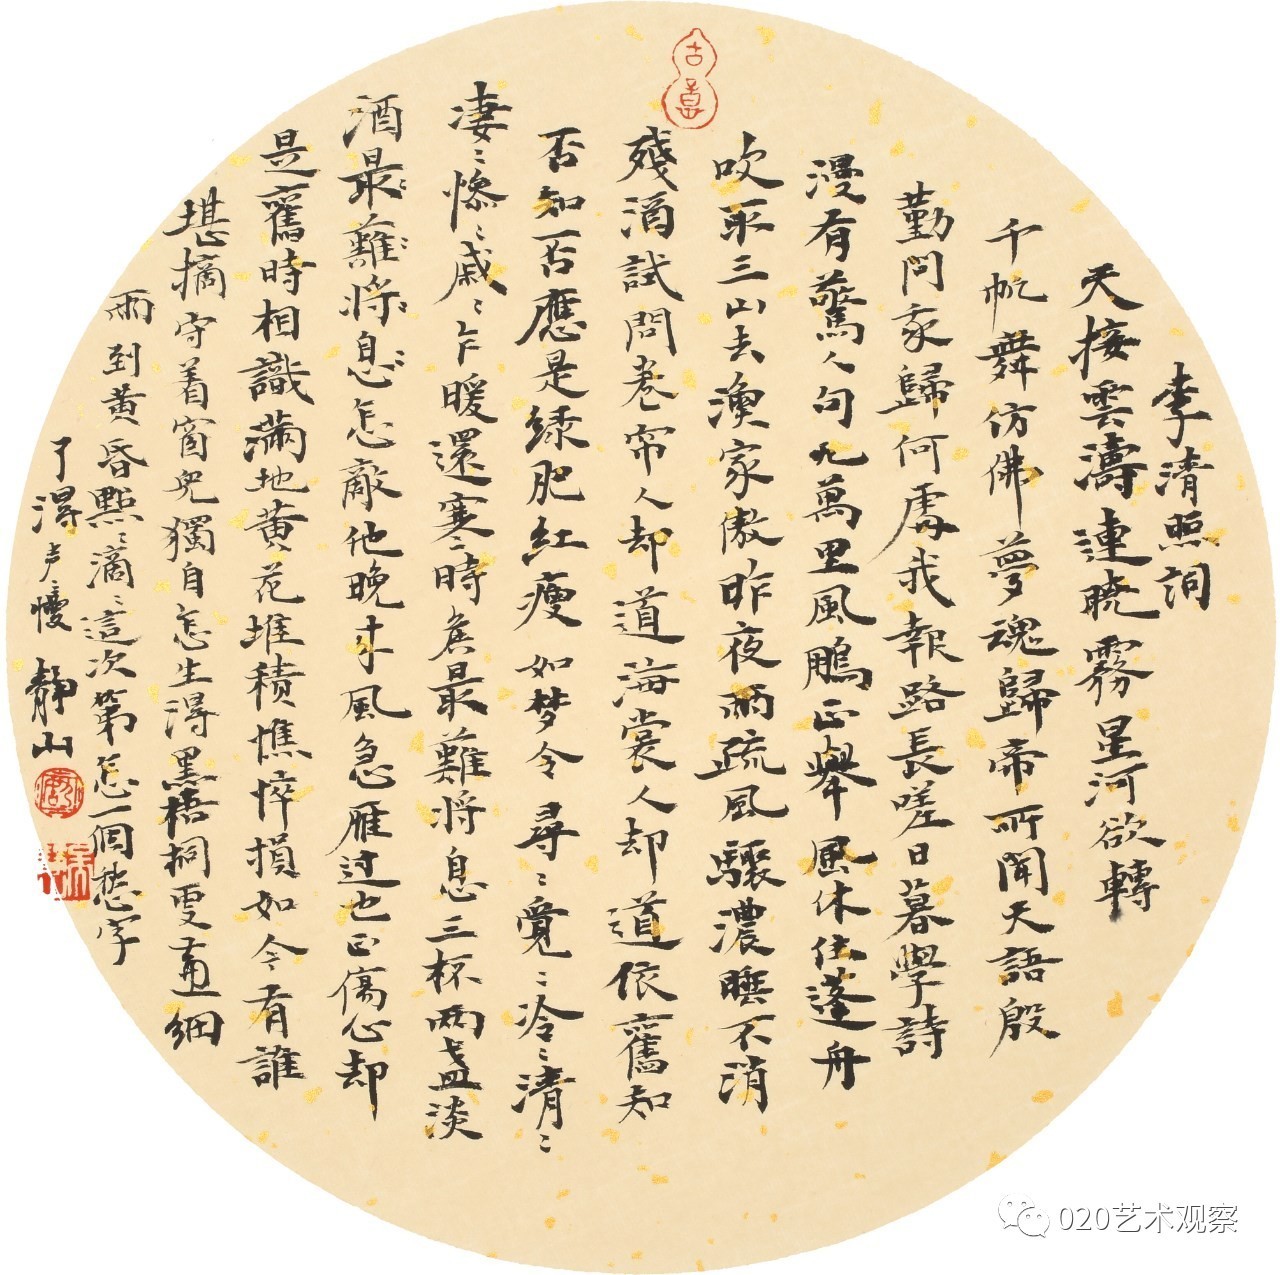 李清照詞
天接雲濤連曉霧星河欲轉
千帆舞仿佛夢魂歸帝所聞天語殷
勤問我歸何處我報路長嗟日暮學詩
漫有驚人句九萬里風鵬正舉風休住蓬舟
吹取三山去漁家傲昨夜雨疏風驟濃睡不消
殘酒試問卷帘人却道海裳人却道依舊知
否知否應是緑肥红瘦如梦令尋〻覺〻冷〻清〻
凄〻慘〻戚〻乍暖還寒〻時矦最難將息三杯兩盏淡
酒最難將息怎敵他晚来風急雁过也正傷心却
是舊時相識滿地黄花堆積憔悴損如今有誰
堪摘守着窗兒獨自怎生得黑梧桐更兼細
雨到黄昏點〻滴〻這次第怎一個愁字
了得声〻慢靜山
020艺术观察